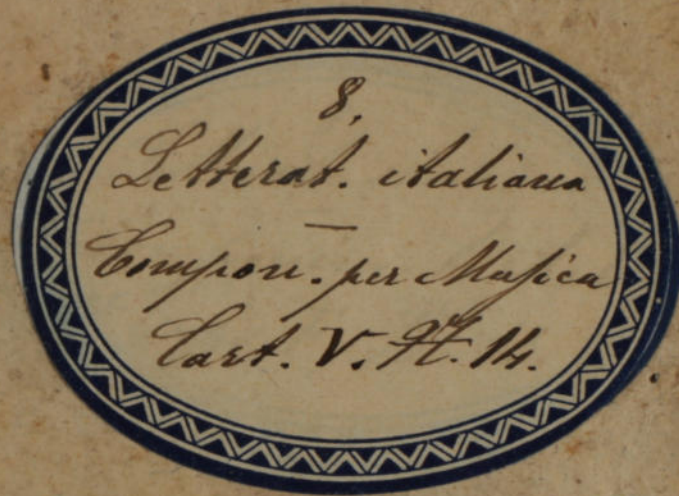 8,
Letterat. italiana
—
Compon. per Musica
Cart. V. N. 14.